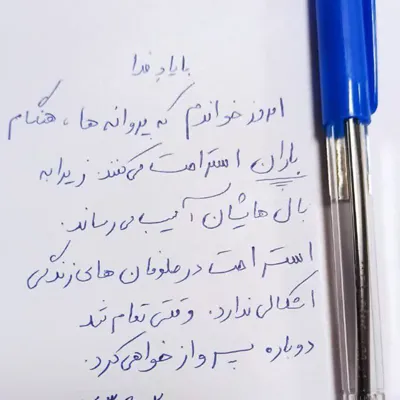 با یاد خدا
امروز خواندم که پروانه ها، هنگام
باران استراحت می‌کنند. زیرا به
بال هایشان آسیب می رساند.
استراحت در طوفان های زندگی
اشکالی ندارد. وقتی تمام شد
دوباره پرواز خواهی کرد.